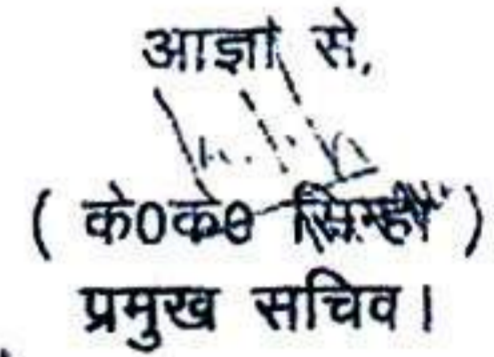 आज्ञा से,
( के0के0 सिन्हा )
प्रमुख सचिव।